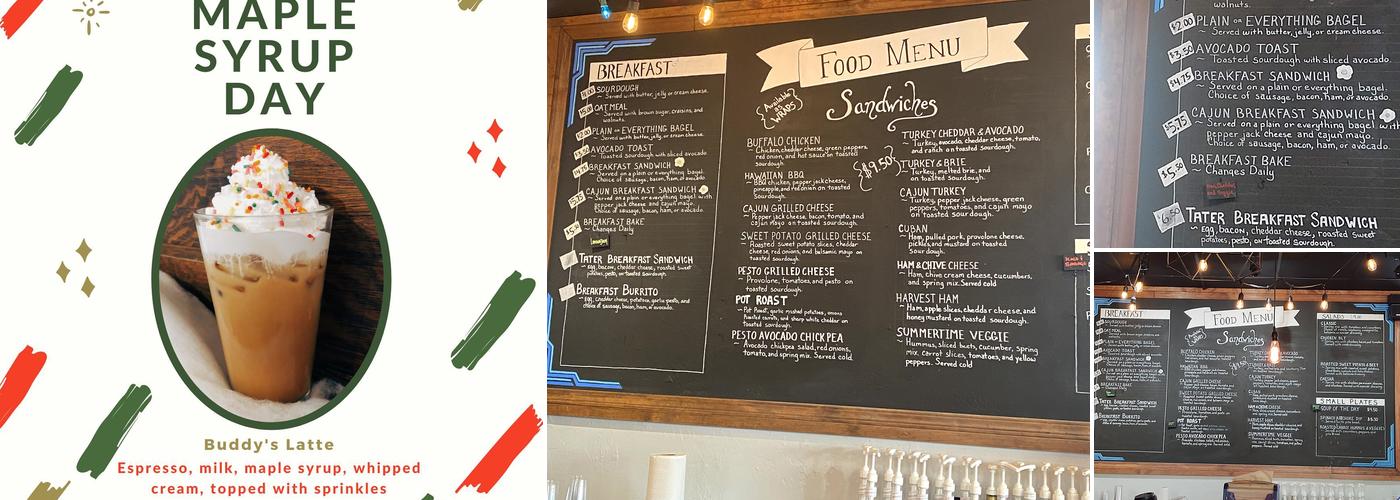 MAPLE
SYRUP
DAY
Buddy's Latte
Espresso, milk, maple syrup, whipped
cream, topped with sprinkles
BREAKFAST
SOURDOUGH
~ Served with butter, jelly or cream cheese.
OATMEAL
~ Served with brown sugar, craisins, and
walnuts.
PLAIN or EVERYTHING BAGEL
~ Served with butter, jelly, or cream cheese.
AVOCADO TOAST
~ Toasted sourdough with sliced avocado.
BREAKFAST SANDWICH
~ Served on a plain or everything bagel.
Choice of sausage, bacon, ham, or avocado.
CAJUN BREAKFAST SANDWICH
~ Served on a plain or everything bagel with
pepper jack cheese and cajun mayo.
Choice of sausage, bacon, ham, or avocado.
BREAKFAST BAKE
~ Changes Daily
TATER BREAKFAST SANDWICH
~ egg, bacon, cheddar cheese, roasted sweet
potatoes, pesto, on toasted sourdough.
BREAKFAST BURRITO
~ egg, cheddar cheese, potatoes, garlic pesto, and
choice of sausage, bacon, ham, or avocado.
FOOD MENU
Sandwiches
Available
as
WRAPS
$9.50
BUFFALO CHICKEN
~ Chicken, cheddar cheese, green peppers,
red onion, and hot sauce on toasted
sourdough.
HAWAIIAN BBQ
~ BBQ chicken, pepper jack cheese,
pineapple, and red onion on toasted
sourdough.
CAJUN GRILLED CHEESE
~ Pepper jack cheese, bacon, tomato, and
cajun mayo on toasted sourdough.
SWEET POTATO GRILLED CHEESE
~ Roasted sweet potato slices, cheddar
cheese, red onions, and balsamic mayo on
toasted sourdough.
PESTO GRILLED CHEESE
~ Provolone, tomatoes, and pesto on
toasted sourdough.
POT ROAST
~ Pot Roast, garlic mashed potatoes, onions
roasted carrots, and sharp white cheddar on
toasted sourdough.
PESTO AVOCADO CHICKPEA
~ Avocado chickpea salad, red onions,
tomato, and spring mix. Served cold
TURKEY CHEDDAR & AVOCADO
~ Turkey, avocado, cheddar cheese, tomato,
and ranch on toasted sourdough.
TURKEY & BRIE
~ Turkey, melted brie, and
on toasted sourdough.
CAJUN TURKEY
~ Turkey, pepper jack cheese, green
peppers, tomatoes, and cajun mayo
on toasted sourdough.
CUBAN
~ Ham, pulled pork, provolone cheese,
pickles, and mustard on toasted
sourdough.
HAM & CHIVE CHEESE
~ Ham, chive cream cheese, cucumbers,
and spring mix. Served cold
HARVEST HAM
~ Ham, apple slices, cheddar cheese, and
honey mustard on toasted sourdough.
SUMMERTIME VEGGIE
~ Hummus, sliced beets, cucumber, spring
mix, carrot slices, tomatoes, and yellow
peppers. Served cold
walnuts.
$2.00 PLAIN or EVERYTHING BAGEL
~ Served with butter, jelly, or cream cheese.
$3.50 AVOCADO TOAST
~ Toasted sourdough with sliced avocado.
$4.75 BREAKFAST SANDWICH
~ Served on a plain or everything bagel.
Choice of sausage, bacon, ham, or avocado
$5.75 CAJUN BREAKFAST SANDWICH
~ Served on a plain or everything bagel with
pepper jack cheese and cajun mayo.
Choice of sausage, bacon, ham, or avocado.
$5.50 BREAKFAST BAKE
~ Changes Daily
TATER BREAKFAST SANDWICH
~ egg, bacon, cheddar cheese, roasted sweet
potatoes, pesto, on toasted sourdough.
BREAKFAST
FOOD MENU
Sandwiches
SALADS
CLASSIC
CAESAR
SMALL PLATES
SOUP OF THE DAY